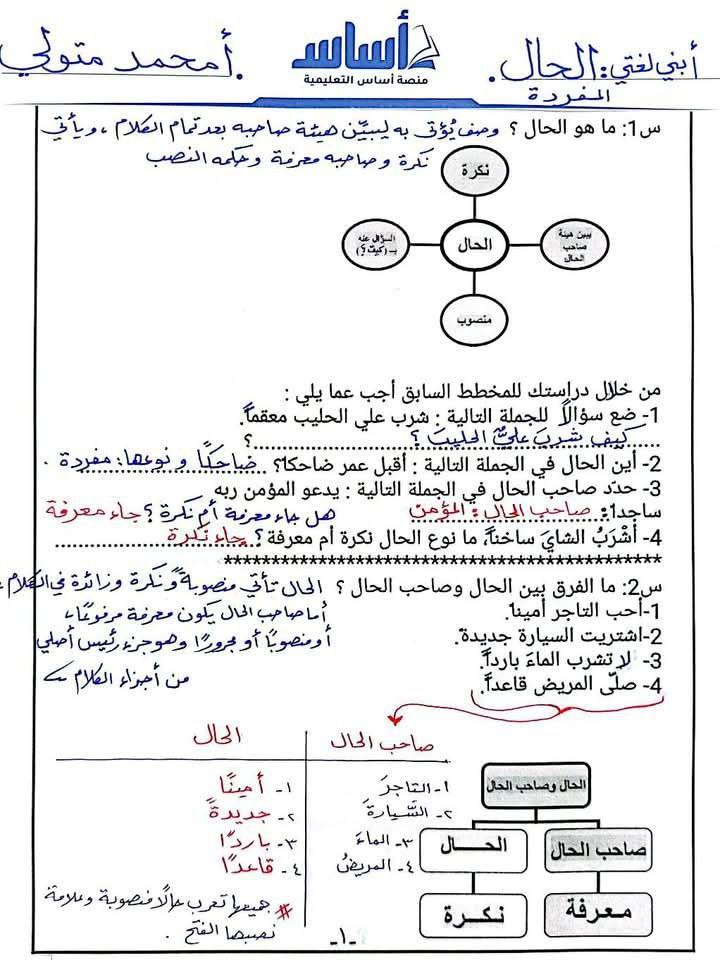 أبني لغتي: الحال المفردة.
أساس
منصة أساس التعليمية
أ محمد متولي.
س1: ما هو الحال ؟ وصف يُؤتى به ليبيّن هيئة صاحبه بعد تمام الكلام، ويأتي
نكرة وصاحبه معرفة وحكمه النصب
نكرة
السؤال عنه بـ (كيف؟)
الحال
يبين هيئة صاحب الحال
منصوب
من خلال دراستك للمخطط السابق أجب عما يلي :
1- ضع سؤالاً للجملة التالية : شرب علي الحليب معقماً.
كيف شربَ عليٌّ الحليبَ ؟ ؟
2- أين الحال في الجملة التالية : أقبل عمر ضاحكا؟ ضاحكًا ونوعها: مفردة .
3- حدّد صاحب الحال في الجملة التالية : يدعو المؤمن ربه
ساجدا: صاحب الحال: المؤمن هل جاء معرفة أم نكرة ؟ جاء معرفة
4- أشْرَبُ الشايَ ساخناً، ما نوع الحال نكرة أم معرفة؟ جاء نكرة
************************************************
س2: ما الفرق بين الحال وصاحب الحال ؟ الحال تأتي منصوبة ونكرة وزائدة في الكلام،
1-أحب التاجر أمينا. أما صاحب الحال يكون معرفة مرفوعًا،
2-اشتريت السيارة جديدة. أو منصوبًا أو مجرورًا وهو جزء رئيس أصلي
3- لا تشرب الماءَ بارداً. من أجزاء الكلام
4- صلّى المريض قاعداً.
صاحب الحال
الحال
١- التاجرَ ١- أمينًا
٢- السَّيارةَ ٢- جديدةً
٣- الماءَ ٣- باردًا
٤- المريضُ ٤- قاعدًا
# جميعها تعرب حالًا منصوبة وعلامة
نصبها الفتح .
الحال وصاحب الحال
صاحب الحال
الحـــال
معرفة
نكرة
-١-